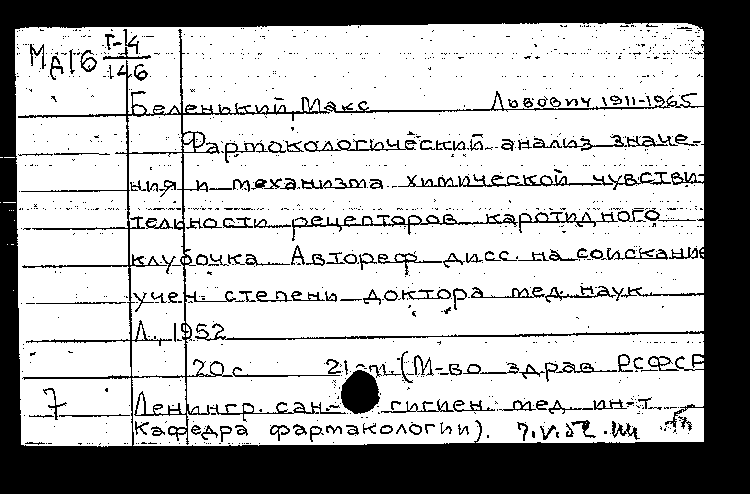 МД16 Г-4/146
Беленький, Макс Львович, 1911-1965
Фармокологический анализ значе-
ния и механизма химической чувстви-
тельности рецепторов каротидного
клубочка. Автореф. дисс. на соискание
учен. степени доктора мед. наук.
Л., 1952
20 с 21 см. (М-во здрав РСФСР
7 Ленингр. сан- гигиен. мед. ин-т.
Кафедра фармакологии).